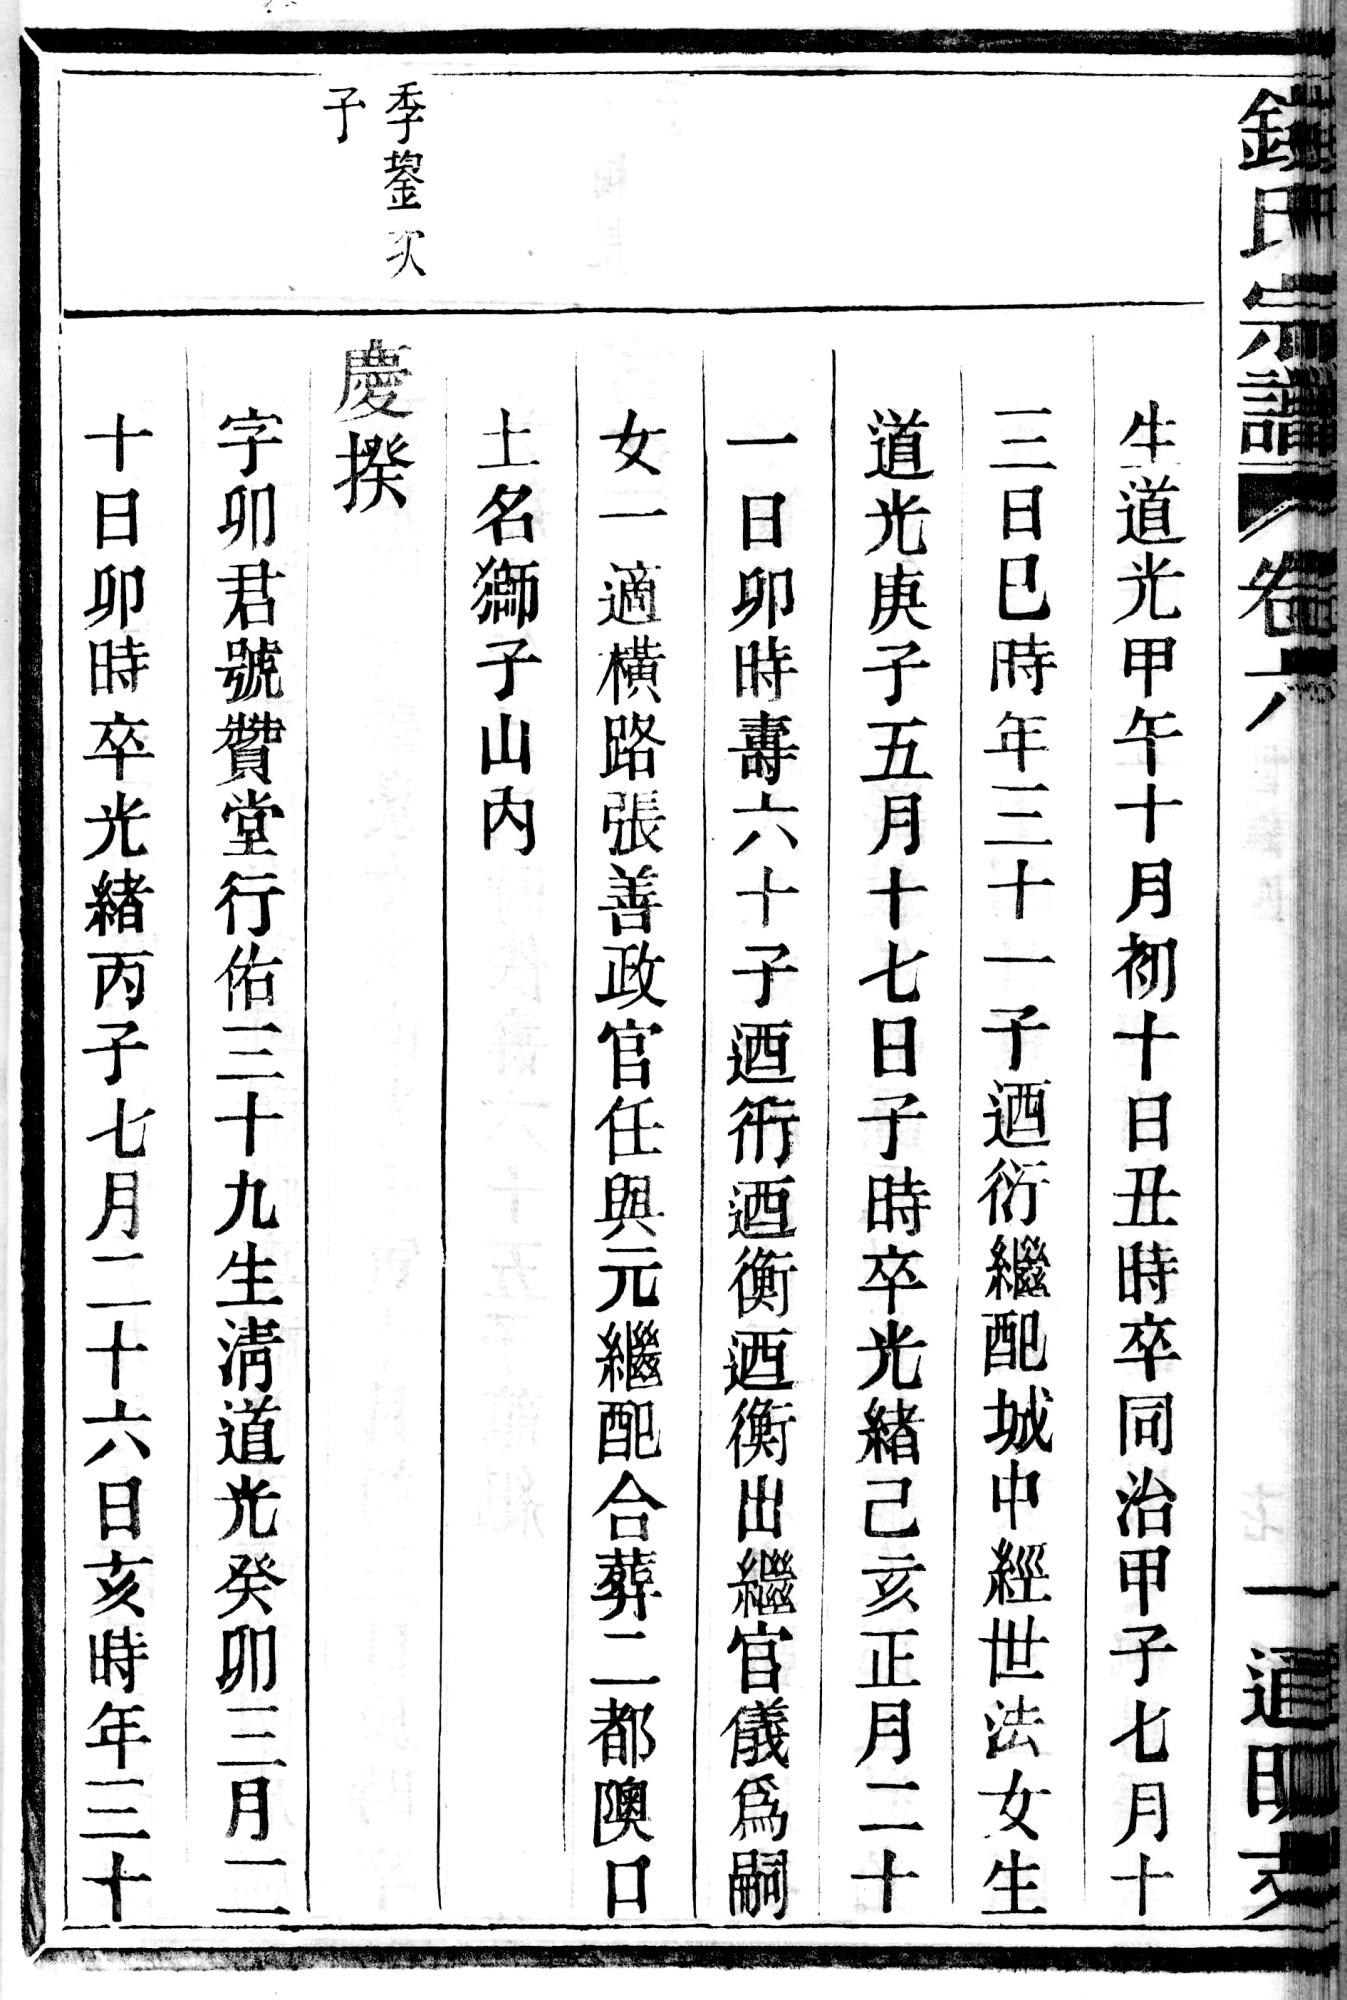 氏宗譜
卷六
一
道明支
生道光甲午十月初十日丑時卒同治甲子七月十
三日巳時年三十一子迺衍繼配城中經世法女生
道光庚子五月十七日子時卒光緒己亥正月二十
一日卯時壽六十子迺衍迺衡迺衡出繼官儀爲嗣
女一適橫路張善政官任與元繼配合葬二都隩口
土名獅子山內
季鋆次
子
慶揆
字卯君號贊堂行佑三十九生清道光癸卯三月二
十日卯時卒光緒丙子七月二十六日亥時年三十